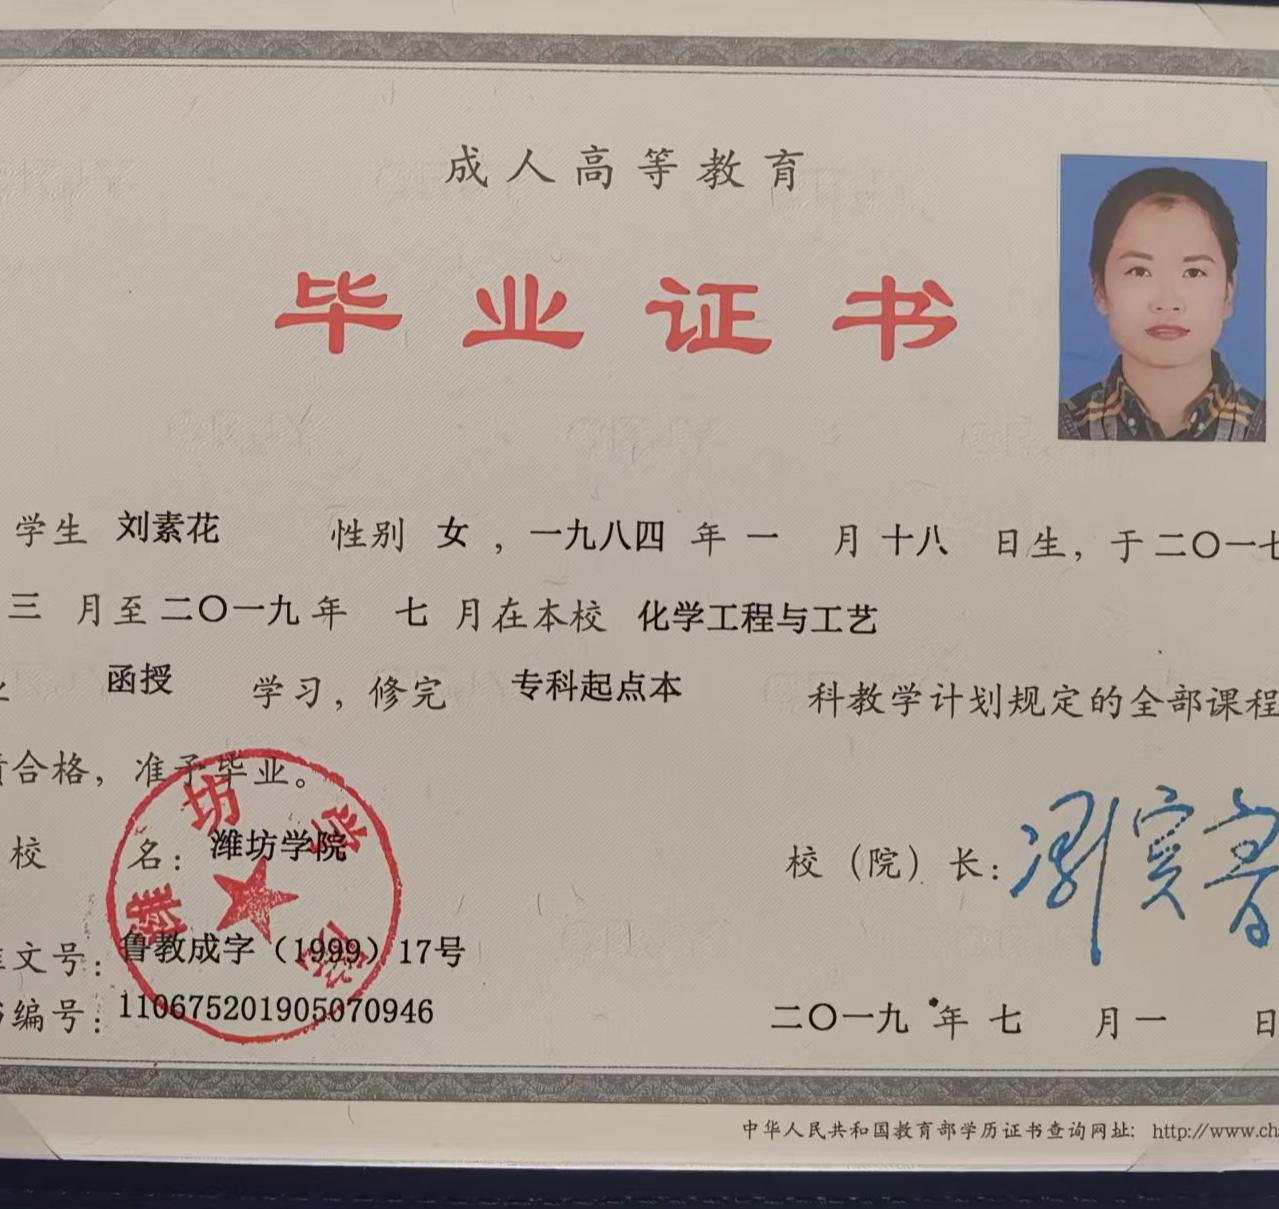 成人高等教育
毕业证书
学生 刘素花 性别 女，一九八四 年 一 月 十八 日生，于 二〇一七
三 月至 二〇一九 年 七 月在本校 化学工程与工艺
函授 学习，修完 专科起点本 科教学计划规定的全部课程
合格，准予毕业。
校 名：潍坊学院
潍坊学院
校（院）长：
文号：鲁教成字（1999）17号
编号：110675201905070946
二〇一九 年 七 月 一 日
中华人民共和国教育部学历证书查询网址：http://www.ch